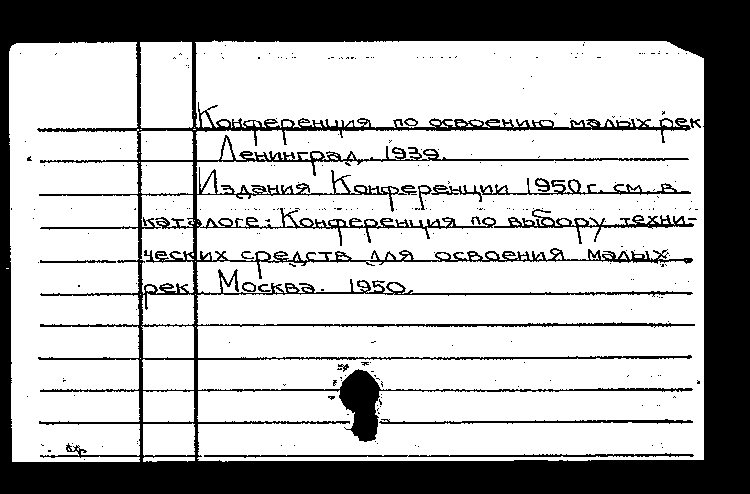 Конференция по освоению малых рек
Ленинград. 1939.
Издания Конференции 1950г. см. в
каталоге: Конференция по выбору техни-
ческих средств для освоения малых
рек. Москва. 1950.